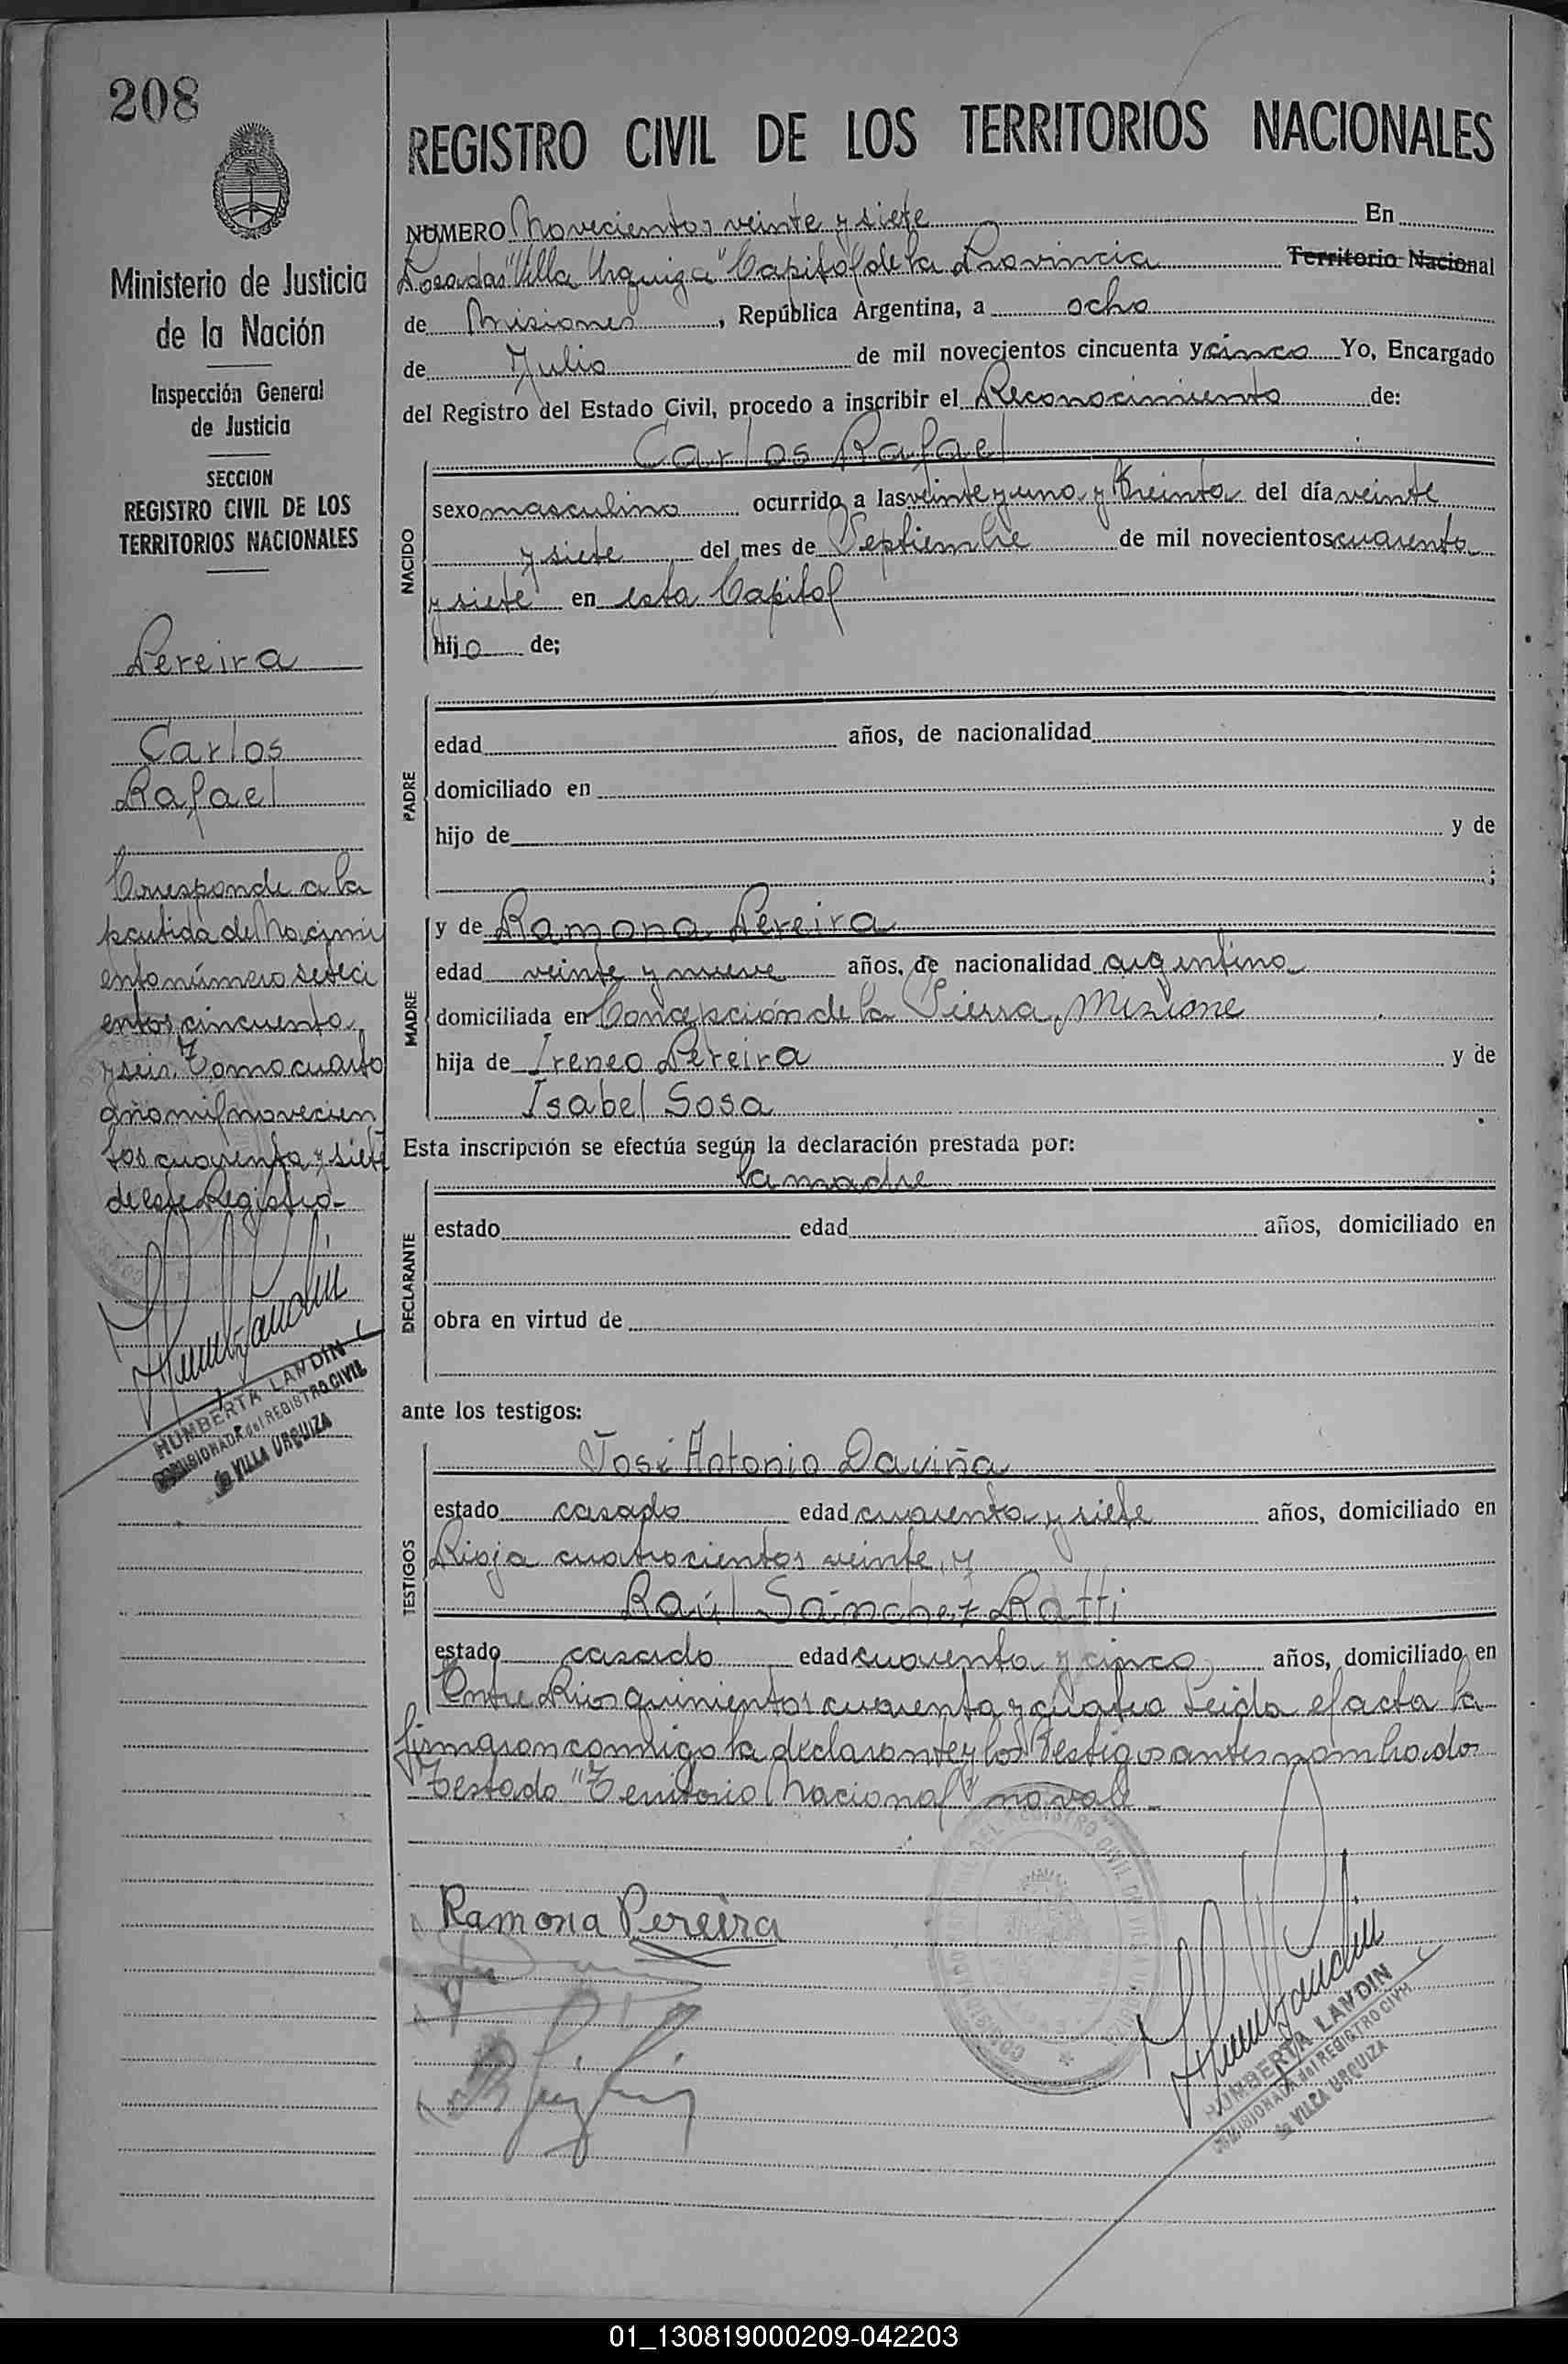 208
Ministerio de Justicia
de la Nación
Inspección General
de Justicia
SECCION
REGISTRO CIVIL DE LOS
TERRITORIOS NACIONALES
Pereira
Carlos
Rafael
Corresponde a la
partida de Nacimi
ento número seteci
entos cincuenta
y seis. Tomo cuarto
año mil novecien
tos cuarenta y siete
de este Registro-
HUMBERTA LANDIN
COMISIONADA del REGISTRO CIVIL
de VILLA URQUIZA
REGISTRO CIVIL DE LOS TERRITORIOS NACIONALES
NUMERO Novecientos veinte y siete En
Posadas "Villa Urquiza" Capital de la Provincia Territorio Nacional
de Misiones, República Argentina, a ocho
de Julio de mil novecientos cincuenta y cinco Yo, Encargado
del Registro del Estado Civil, procedo a inscribir el Reconocimiento de:
Carlos Rafael
NACIDO
sexo masculino ocurrido a las veinte y uno y treinta del día veinte
y siete del mes de Septiembre de mil novecientos cuarenta
y siete en esta Capital
hijo de;
PADRE
edad años, de nacionalidad
domiciliado en
hijo de y de
;
MADRE
y de Ramona Pereira
edad veinte y nueve años, de nacionalidad argentina
domiciliada en Concepción de la Sierra, Misione
hija de Ireneo Pereira y de
Isabel Sosa.
Esta inscripción se efectúa según la declaración prestada por:
la madre
DECLARANTE
estado edad años, domiciliado en
obra en virtud de
ante los testigos:
TESTIGOS
José Antonio Daviña
estado casado edad cuarenta y siete años, domiciliado en
Rioja cuatrocientos veinte, y
Raúl Sánchez Ratti
estado casado edad cuarenta y cinco años, domiciliado en
Entre Rios quinientos cuarenta y cuatro Leida el acta la
firmaron conmigo la declarante y los testigos antes nombrados
Testado "Territorio Nacional" no vale
Ramona Pereira
HUMBERTA LANDIN
COMISIONADA del REGISTRO CIVIL
de VILLA URQUIZA
01_130819000209-042203